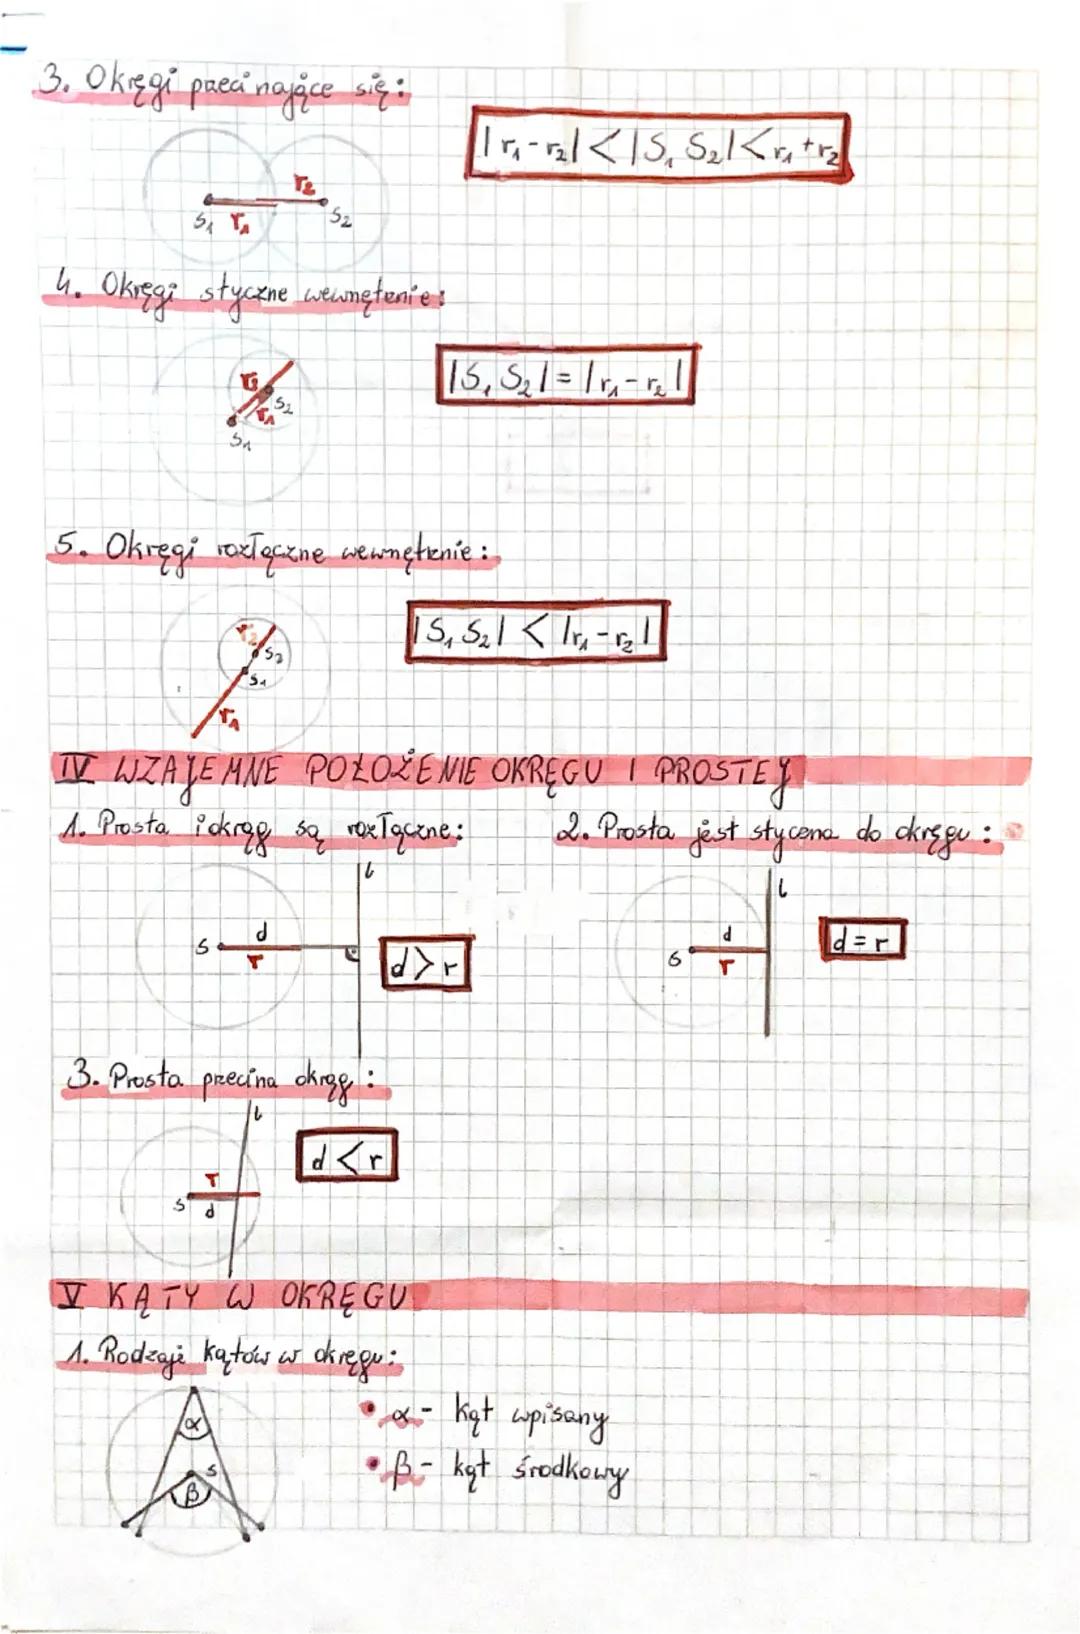 3. Okręgi przecinające się:
|r₁-r₂| < |S₁ S₂| < r₁+r₂
r₂
S₁ r₁ S₂
4. Okręgi styczne wewnętrznie:
|S₁ S₂| = |r₁-r₂|
r₂
S₂
r₁
S₁
5. Okręgi rozłączne wewnętrznie:
|S₁ S₂| < |r₁-r₂|
r₂
S₂
S₁
r₁
IV WZAJEMNE POŁOŻENIE OKRĘGU I PROSTEJ
1. Prosta i okrąg są rozłączne:
l
S d
r
d > r
2. Prosta jest stycena do okręgu:
l
d
S r
d = r
3. Prosta przecina okrąg:
l
r
S d
d < r
V KĄTY W OKRĘGU
1. Rodzaje kątów w okręgu:
α
S
β
• α - kąt wpisany
• β - kąt środkowy